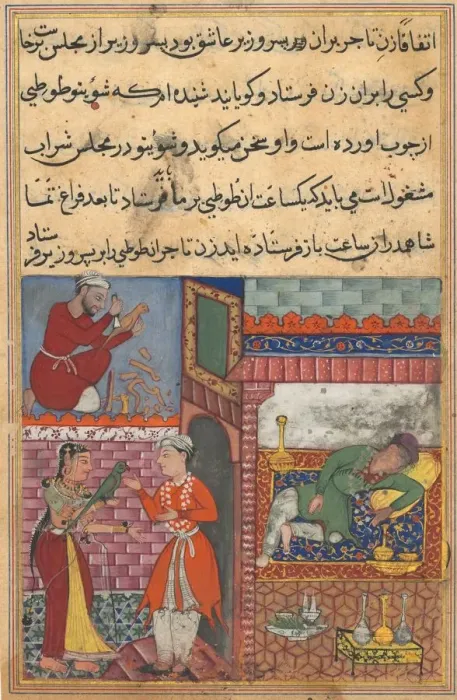 اتفاقا زن تاجر بران پسر وزیر عاشق بود پسر وزیر از مجلس برخاست
وکسی را بران زن فرستاد و کویانید شنیده ام که شوی تو طوطی
از چوب اورده است و او سخن میکوید و شوی تو در مجلس شراب
مشغول است می باید که یکساعت ان طوطی بر ما فرستاد تا بعد فراغ تما
شا هدران ساعت باز فرستاده اید زن تاجر ان طوطی را بر پسر وزیر فرستاد